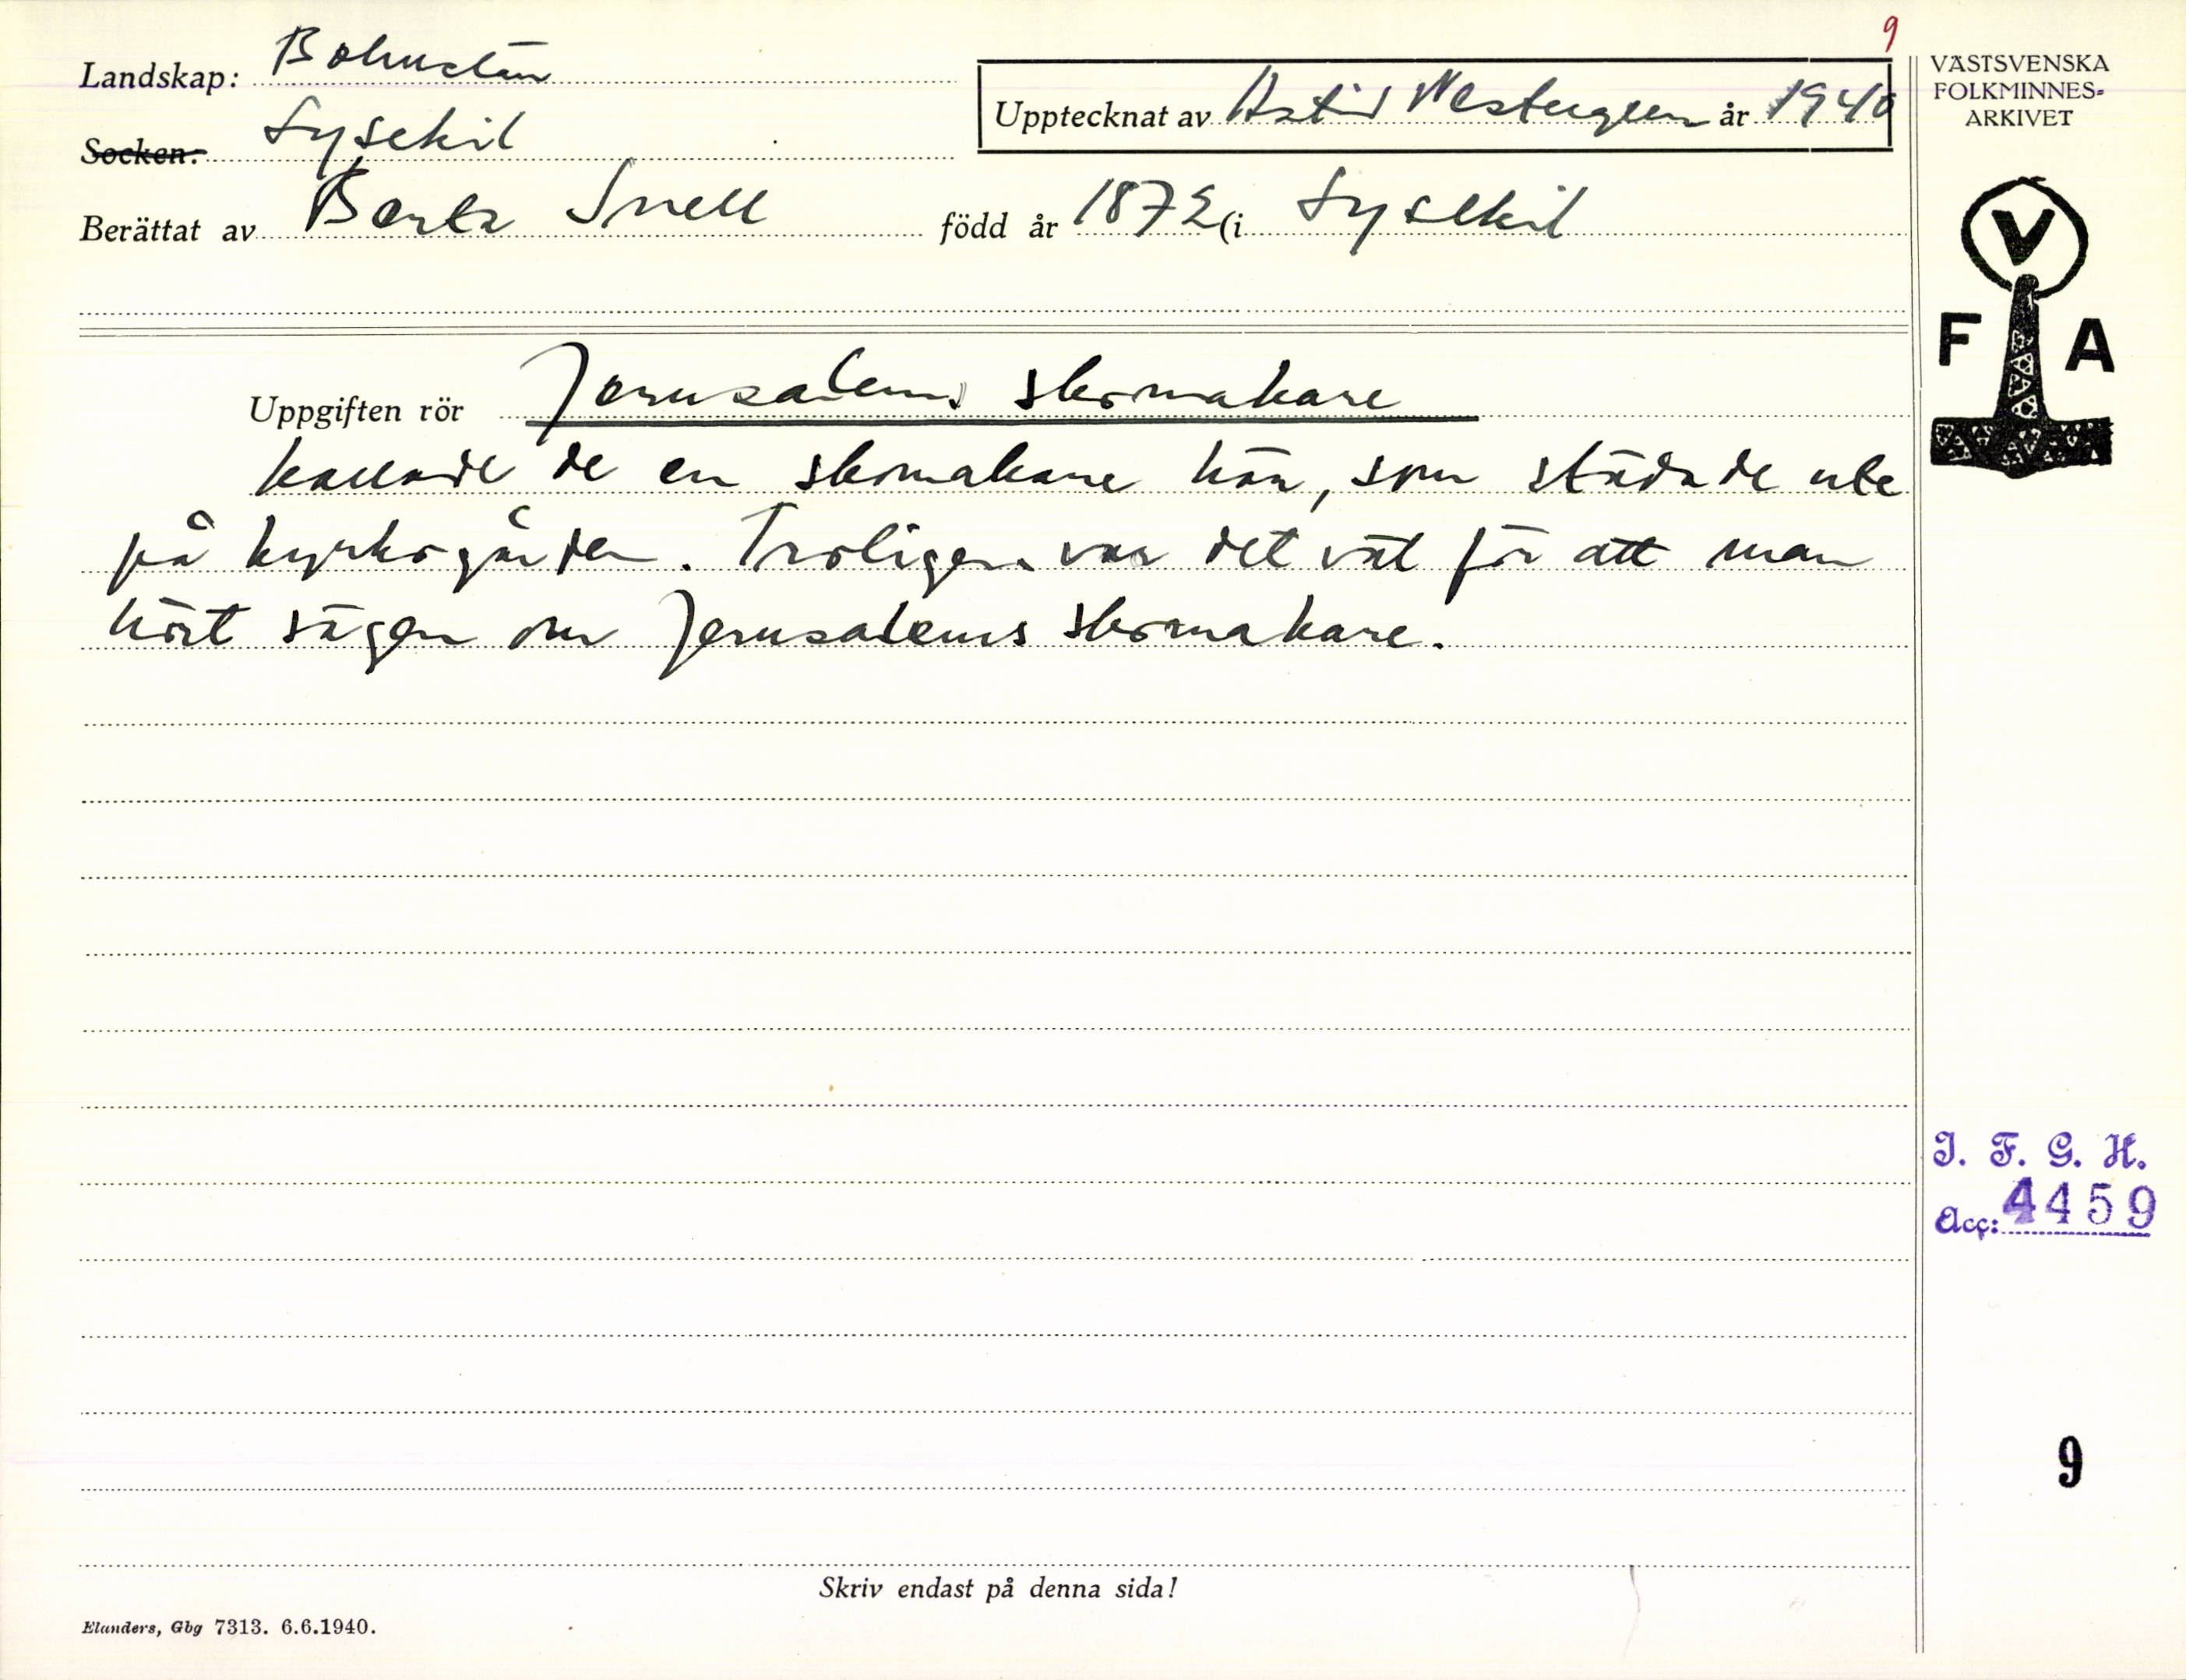 9
Landskap: Bohuslän
Socken: Lysekil
Upptecknat av Astrid Westergren år 1940
Berättat av Berta Snell född år 1872 (i Lysekil
VÄSTSVENSKA
FOLKMINNES-
ARKIVET
V
F A
Uppgiften rör Jerusalems skomakare
kallade de en skomakare här, som städade ute
på kyrkogården. Troligen var det väl för att man
hört sägen om Jerusalems skomakare.
I. F. G. H.
Acc: 4459
9
Skriv endast på denna sida!
Elanders, Gbg 7313. 6.6.1940.